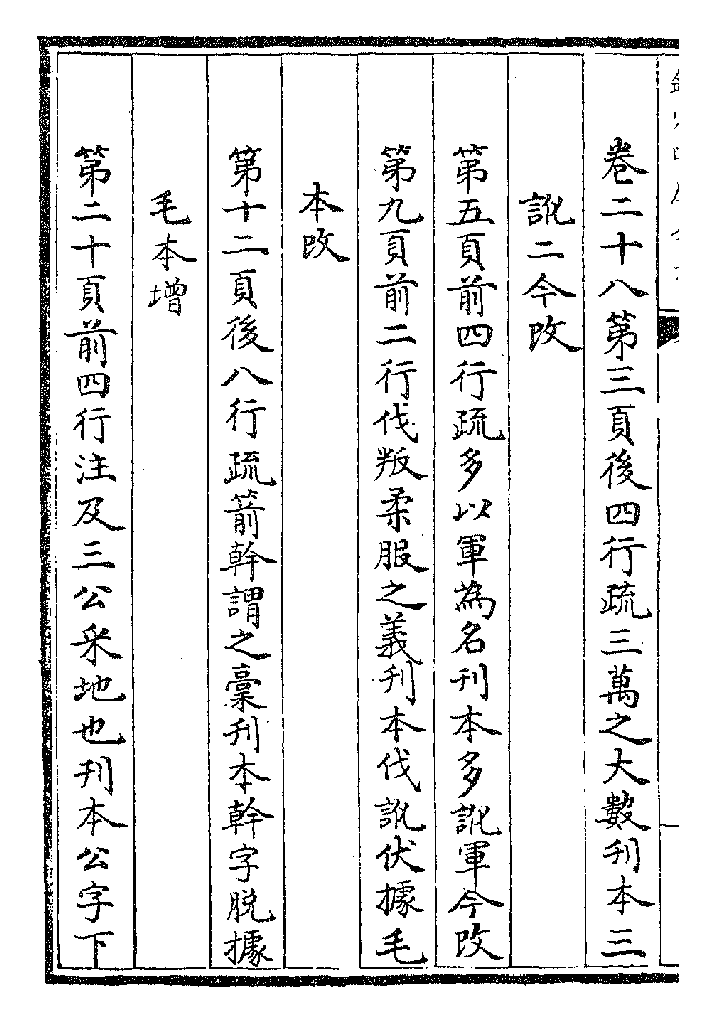 卷二十八第三頁後四行疏三萬之大數刋本三
訛二今改
第五頁前四行疏多以軍為名刋本多訛軍今改
第九頁前二行伐叛柔服之義刋本伐訛伏據毛
本改
第十二頁後八行疏箭幹謂之稾刋本幹字脱據
毛本增
第二十頁前四行注及三公采地也刋本公字下